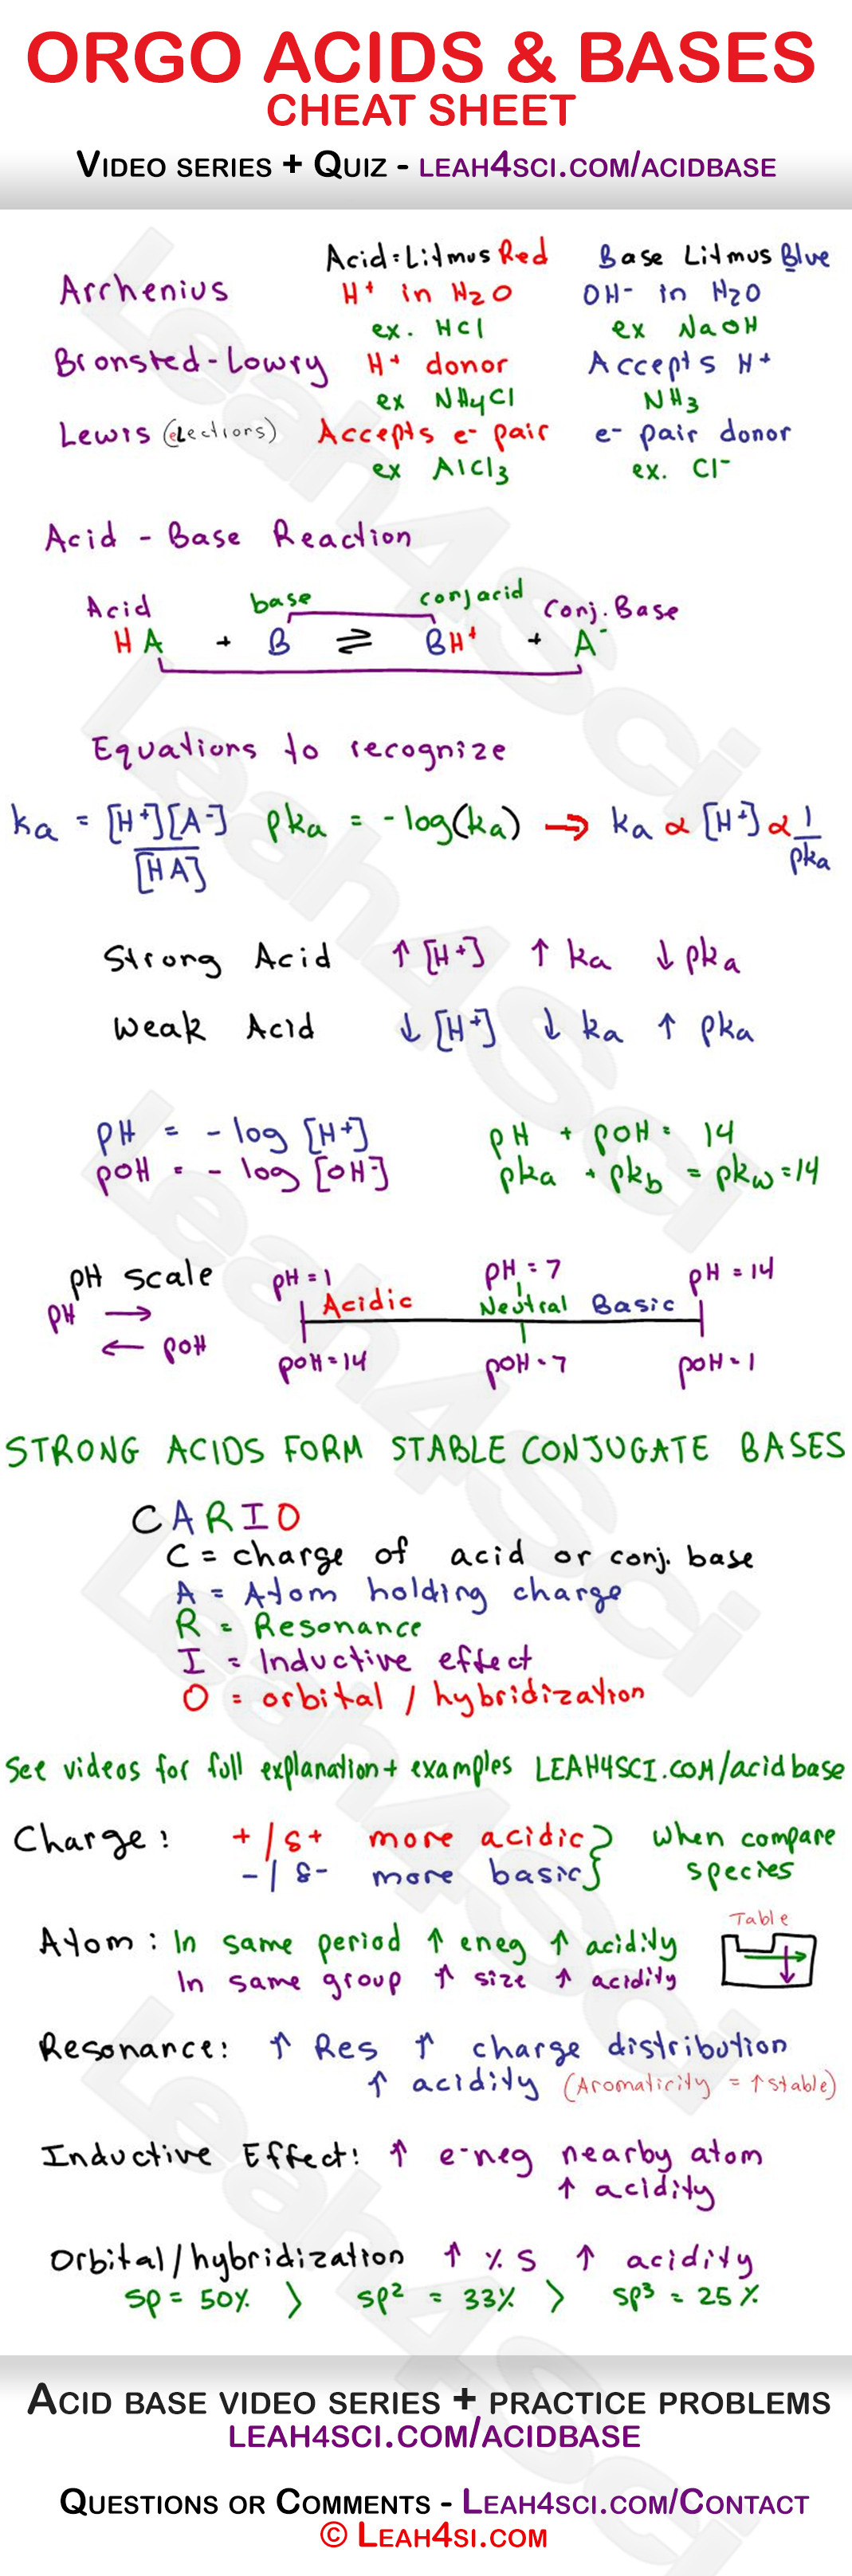 ORGO ACIDS & BASES
CHEAT SHEET
VIDEO SERIES + QUIZ - LEAH4SCI.COM/ACIDBASE
Acid: Litmus Red Base Litmus Blue
Arrhenius H⁺ in H₂O OH⁻ in H₂O
ex. HCl ex NaOH
Bronsted-Lowry H⁺ donor Accepts H⁺
ex NH₄Cl NH₃
Lewis (eLectrons) Accepts e⁻ pair e⁻ pair donor
ex AlCl₃ ex. Cl⁻
Acid - Base Reaction
Acid base conj acid Conj. Base
HA + B ⇌ BH⁺ + A⁻
Equations to recognize
ka = [H⁺][A⁻]/[HA] pka = -log(ka) → ka ∝ [H⁺] ∝ 1/pka
Strong Acid ↑ [H⁺] ↑ ka ↓ pka
Weak Acid ↓ [H⁺] ↓ ka ↑ pka
pH = - log [H⁺] pH + pOH = 14
pOH = - log [OH⁻] pka + pkb = pkw = 14
pH scale pH = 1 pH = 7 pH = 14
pH → Acidic Neutral Basic
← pOH pOH = 14 pOH = 7 pOH = 1
STRONG ACIDS FORM STABLE CONJUGATE BASES
CARIO
C = charge of acid or conj. base
A = Atom holding charge
R = Resonance
I = Inductive effect
O = orbital / hybridization
See videos for full explanation + examples LEAH4SCI.COM/acidbase
Charge: + / δ+ more acidic } when compare
- / δ- more basic } species
Table
Atom: In same period ↑ eneg ↑ acidity
In same group ↑ size ↑ acidity
Resonance: ↑ Res ↑ charge distribution
↑ acidity (Aromaticity = ↑ stable)
Inductive Effect: ↑ e-neg nearby atom
↑ acidity
Orbital/hybridization ↑ % S ↑ acidity
sp = 50% > sp² = 33% > sp³ = 25%
ACID BASE VIDEO SERIES + PRACTICE PROBLEMS
LEAH4SCI.COM/ACIDBASE
QUESTIONS OR COMMENTS - LEAH4SCI.COM/CONTACT
© LEAH4SI.COM
Leah4Sci
Leah4Sci
Leah4Sci
Leah4Sci
Leah4Sci